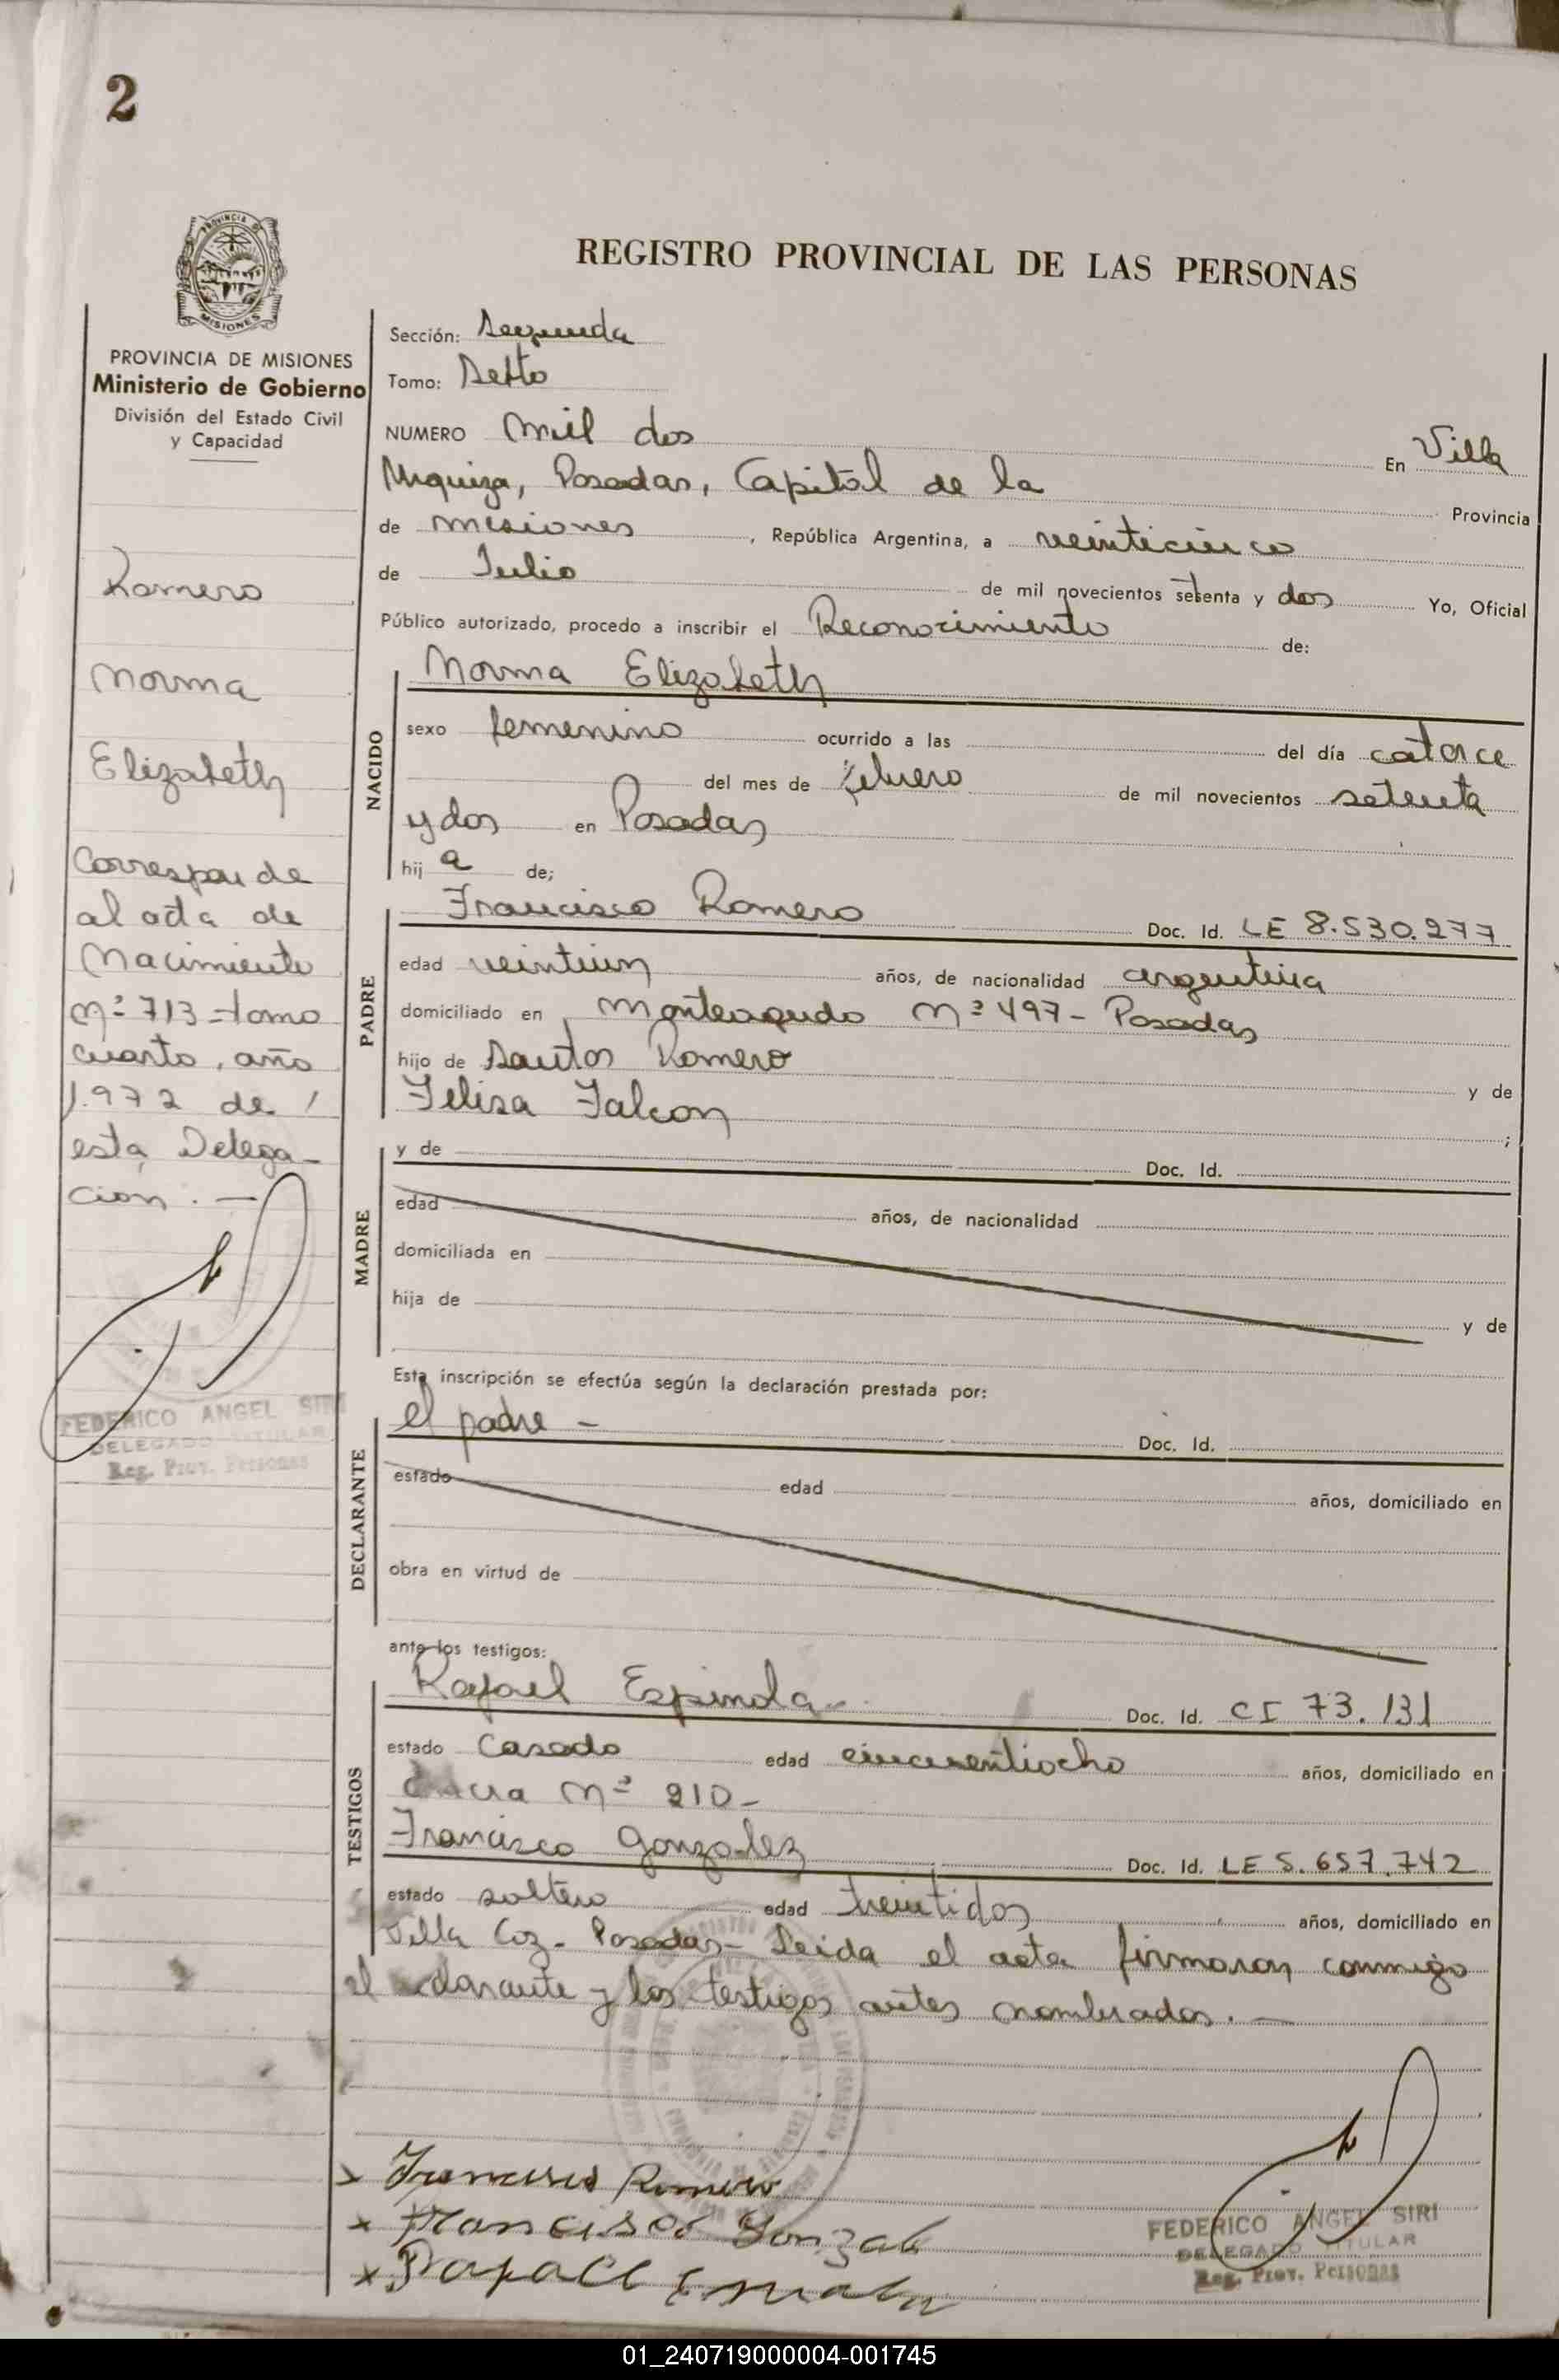 2
REGISTRO PROVINCIAL DE LAS PERSONAS
PROVINCIA DE MISIONES
Ministerio de Gobierno
División del Estado Civil
y Capacidad
Romero
Norma
Elizabeth
Corresponde
al acta de
Nacimiento
Nº 713 - tomo
cuarto, año
1.972 de
esta Delega-
cion. —
FEDERICO ANGEL SIRI
DELEGADO TITULAR
Reg. Prov. Personas
Sección: Segunda
Tomo: Sexto
NUMERO Mil dos En Villa
Urquiza, Posadas, Capital de la Provincia
de Misiones, República Argentina, a veinticinco
de Julio de mil novecientos setenta y dos Yo, Oficial
Público autorizado, procedo a inscribir el Reconocimiento de:
NACIDO
Norma Elizabeth
sexo femenino ocurrido a las del día catorce
del mes de febrero de mil novecientos setenta
y dos en Posadas
hij a de;
PADRE
Francisco Romero Doc. Id. LE 8.530.277
edad veintiun años, de nacionalidad argentina
domiciliado en Monteagudo Nº 497 - Posadas
hijo de Santos Romero y de
Felisa Falcon ;
MADRE
y de Doc. Id.
edad años, de nacionalidad
domiciliada en
hija de y de
Esta inscripción se efectúa según la declaración prestada por:
DECLARANTE
el padre - Doc. Id.
estado edad años, domiciliado en
obra en virtud de
ante los testigos:
TESTIGOS
Rafael Espinola Doc. Id. CI 73.131
estado Casado edad cincuentiocho años, domiciliado en
Chacra Nº 210 -
Francisco Gonzalez Doc. Id. LE 5.657.742
estado soltero edad treintidos años, domiciliado en
Villa Coz - Posadas - Leida el acta firmaron conmigo
el declarante y los testigos antes nombrados. —
x Francisco Romero
x Francisco Gonzale
x Rafael
FEDERICO ANGEL SIRI
DELEGADO TITULAR
Reg. Prov. Personas
01_240719000004-001745